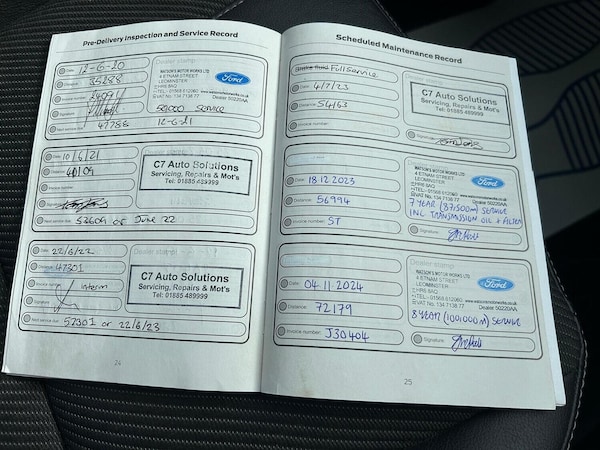 Pre-Delivery Inspection and Service Record
Date: 12-6-20
Distance: 35288
Signature:
Next service due: 47788 12-6-21
Dealer stamp:
WATSON'S MOTOR WORKS LTD
4 ETNAM STREET
LEOMINSTER
HR6 8AQ
TEL- 01568 612060 www.watsonsmotorworks.co.uk
VAT No. 134 7138 77 Dealer 50220AA
Ford
50000 SERVICE
Date: 10/6/21
Distance: 40109
Invoice number:
Signature:
Next service due: 52609 or June 22
Dealer stamp:
C7 Auto Solutions
Servicing, Repairs & Mot's
Tel: 01885 489999
Date: 22/6/22
Distance: 47301
Invoice number: interim
Signature:
Next service due: 57301 or 22/6/23
Dealer stamp:
C7 Auto Solutions
Servicing, Repairs & Mot's
Tel: 01885 489999
24
Scheduled Maintenance Record
Brake fluid Full Service
Date: 4/7/23
Distance: 54163
Invoice number:
Dealer stamp:
C7 Auto Solutions
Servicing, Repairs & Mot's
Tel: 01885 489999
Signature:
Date: 18.12.2023
Distance: 56994
Invoice number: ST
Dealer stamp:
WATSON'S MOTOR WORKS LTD
4 ETNAM STREET
LEOMINSTER
HR6 8AQ
TEL- 01568 612060 www.watsonsmotorworks.co.uk
VAT No. 134 7138 77 Dealer 50220AA
Ford
7 YEAR (87,500m) SERVICE
INC TRANSMISSION OIL + FILTER
Signature:
Date: 04.11.2024
Distance: 72179
Invoice number: J30404
Dealer stamp:
WATSON'S MOTOR WORKS LTD
4 ETNAM STREET
LEOMINSTER
HR6 8AQ
TEL- 01568 612060 www.watsonsmotorworks.co.uk
VAT No. 134 7138 77 Dealer 50220AA
Ford
8 YEAR (100,000m) SERVICE
Signature:
25